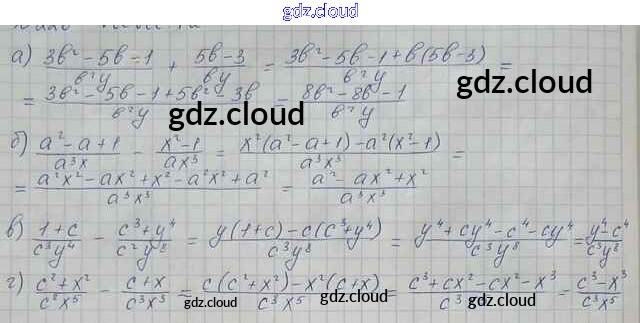 gdz.cloud
а) (3b² - 5b - 1)/(b²y) + (5b - 3)/(by) = (3b² - 5b - 1 + b(5b - 3))/(b²y) =
= (3b² - 5b - 1 + 5b² - 3b)/(b²y) = (8b² - 8b - 1)/(b²y)
gdz.cloud
gdz.cloud
б) (a² - a + 1)/(a³x) - (x² - 1)/(ax³) = (x²(a² - a + 1) - a²(x² - 1))/(a³x³) =
gdz.cloud
= (a²x² - ax² + x² - a²x² + a²)/(a³x³) = (a² - ax² + x²)/(a³x³)
gdz.cloud
в) (1 + c)/(c³y⁴) - (c³ + y⁴)/(c²y⁸) = (y⁴(1 + c) - c(c³ + y⁴))/(c³y⁸) = (y⁴ + cy⁴ - c⁴ - cy⁴)/(c³y⁸) = (y⁴ - c⁴)/(c³y⁸)
gdz.cloud
г) (c² + x²)/(c²x⁵) - (c + x)/(c³x³) = (c(c² + x²) - x²(c + x))/(c³x⁵) = (c³ + cx² - cx² - x³)/(c³ = (c³ - x³)/(c³x⁵)
gdz.cloud
gdz.cloud
gdz.cloud